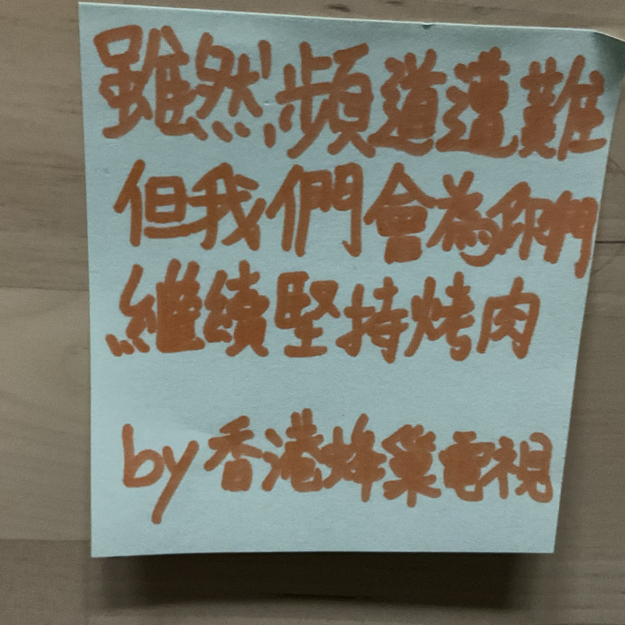 雖然頻道遭難
但我們會為你們
繼續堅持烤肉
by香港蜂巢電視